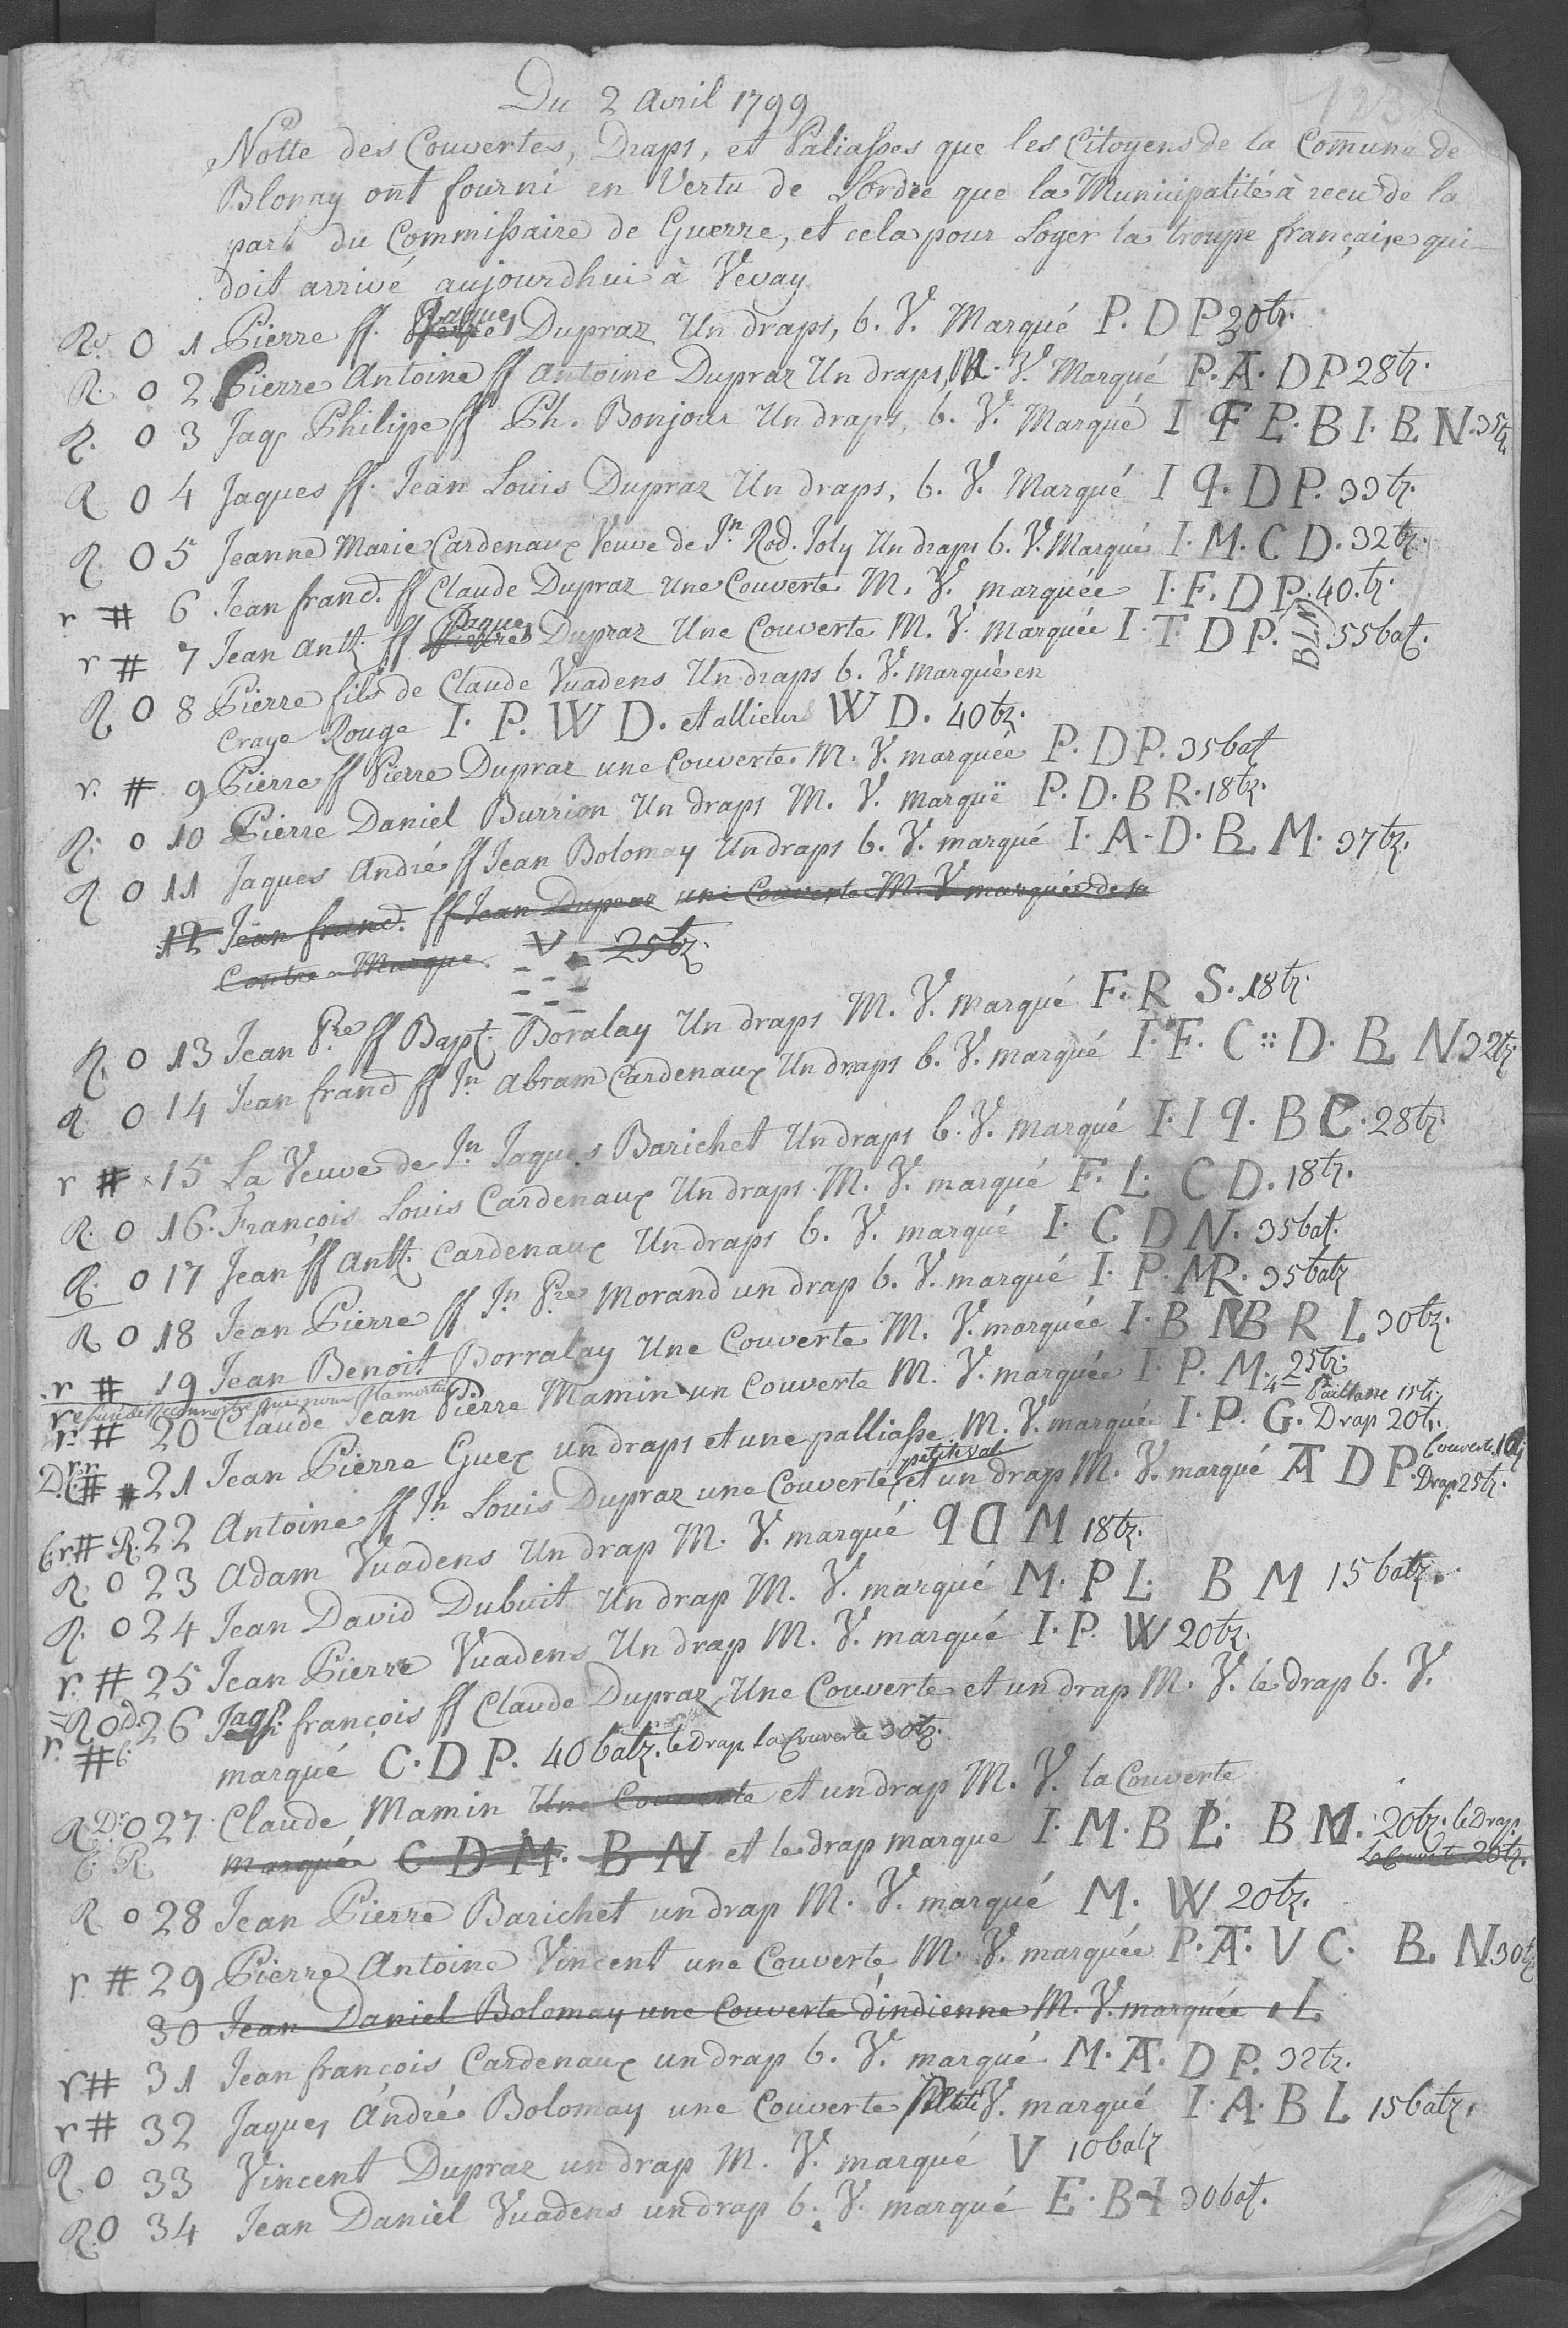 Du 2 Avril 1799
Notte des Couvertes, Draps, et Paliasses que les Citoyens de la Comune de
Blonay ont fourni en Vertu de L'ordre que la Municipalité à recu de la
part du Commissaire de Guerre, et cela pour Loger la troupe française qui
doit arrivé aujourdhui à Vevay
R. O 1 Pierre ff. Jaques Dupraz Un draps, b. V. Marqué P. D P 30 bz.
R. O 2 Pierre Antoine ff Antoine Dupraz Un draps, M. V. Marqué P. A. D P 28 bz.
R. O 3 Jaqs Philipe ff Ph. Bonjour Un draps, b. V. Marqué I q F P. B I. B N. 35 bz
R. O 4 Jaques ff. Jean Louis Dupraz Un draps, b. V. Marqué I q. D P. 33 bz.
R. O 5 Jeanne Marie Cardenaux Veuve de Jn. Rod. Joly Un draps b. V. Marqué I. M. C D. 32 bz.
r # 6 Jean francd. ff Claude Dupraz une Couverte M. V. marquée I. F. D P. 40. bz.
r # 7 Jean Antt. ff Jaques Dupraz Une Couverte M. V. Marquée I. T. D P. BLN 55 bat.
R. O 8 Pierre fils de Claude Vuadens Un draps b. V. Marqué en
Craye Rouge I. P. W D. et allieurs W D. 40 bz.
r. # 9 Pierre ff Pierre Dupraz une Couverte M. V. marquée P. D P. 35 bat
R. O 10 Pierre Daniel Burrion Un draps M. V. marqué P. D. B R. 18 bz.
R. O 11 Jaques André ff Jean Bolomay Un draps b. V. marqué I. A. D. B M. 37 bz.
12 Jean francd. ff Jean Dupraz une Couverte M. V. marquée de sa
Contre-Marque. V 25 bz.
R. O 13 Jean Pre ff Bapt. Boralay Un draps M. V. marqué F. R S. 18 bz.
R. O 14 Jean francd ff Jn. Abram Cardenaux Un draps b. V. marqué I. F. C :: D. B N. 32 bz
r # 15 La Veuve de Jn Jaques Barichet Un draps b. V. marqué I. I q. B C. 28 bz.
R. O 16. François Louis Cardenaux Un draps M. V. marqué F. L. C D. 18 bz.
R. O 17 Jean ff Antt. Cardenaux Un draps b. V. marqué I. C D N. 35 bat.
R. O 18 Jean Pierre ff Jn Pre Morand un drap b. V. marqué I. P. M R. 35 batz
r # 19 Jean Benoit Borralay Une Couverte M. V. marquée I. B N B R L 30 bz.
r. # 20 Claude Jean Pierre Mamin un Couverte M. V. marquée I. P. M. 25 bz.
Dr. # # 21 Jean Pierre Guex un draps et une palliasse M. V. marquée I. P. G. Paillasse 15 bz. Drap 20 bz.
C. r # R. 22 Antoine ff Jn Louis Dupraz une Couverte petite val et un drap M. V. marqué A D P. Couverte 16 bz Drap 25 bz.
R. O 23 Adam Vuadens Un drap M. V. marqué q D M 18 bz.
R. O 24 Jean David Dubuit Un drap M. V. marqué M. P L. B M 15 batz.
r. # 25 Jean Pierre Vuadens Un drap M. V. marqué I. P. W 20 bz.
R O D. 26 Jaqs. françois ff Claude Dupraz Une Couverte et un drap M. V. le drap b. V.
r. # C. marqué C. D P. 40 batz. le drap la Couverte 30 bz.
R Dr. O 27 Claude Mamin Une Couverte et un drap M. V. la Couverte
C. R marquée C D M. B N et le drap marqué I. M. B L. B M. 20 bz. le Drap
La Couverte 20 bz.
R O 28 Jean Pierre Barichet un drap M. V. marqué M. W 20 bz.
r # 29 Pierre Antoine Vincent une Couverte M. V. marquée P. A. V C. B N 30 bz
30 Jean Daniel Bolomay une Couverte d'indienne M. V. marquée . L
r # 31 Jean françois Cardenaux un drap b. V. marqué M. A. D P. 32 bz.
r # 32 Jaques André Bolomay une Couverte petite V. marqué I. A. B L 15 batz.
R. O 33 Vincent Dupraz un drap M. V. marqué V 10 batz
R. O 34 Jean Daniel Vuadens un drap b. V. marqué E. B I 30 bat.